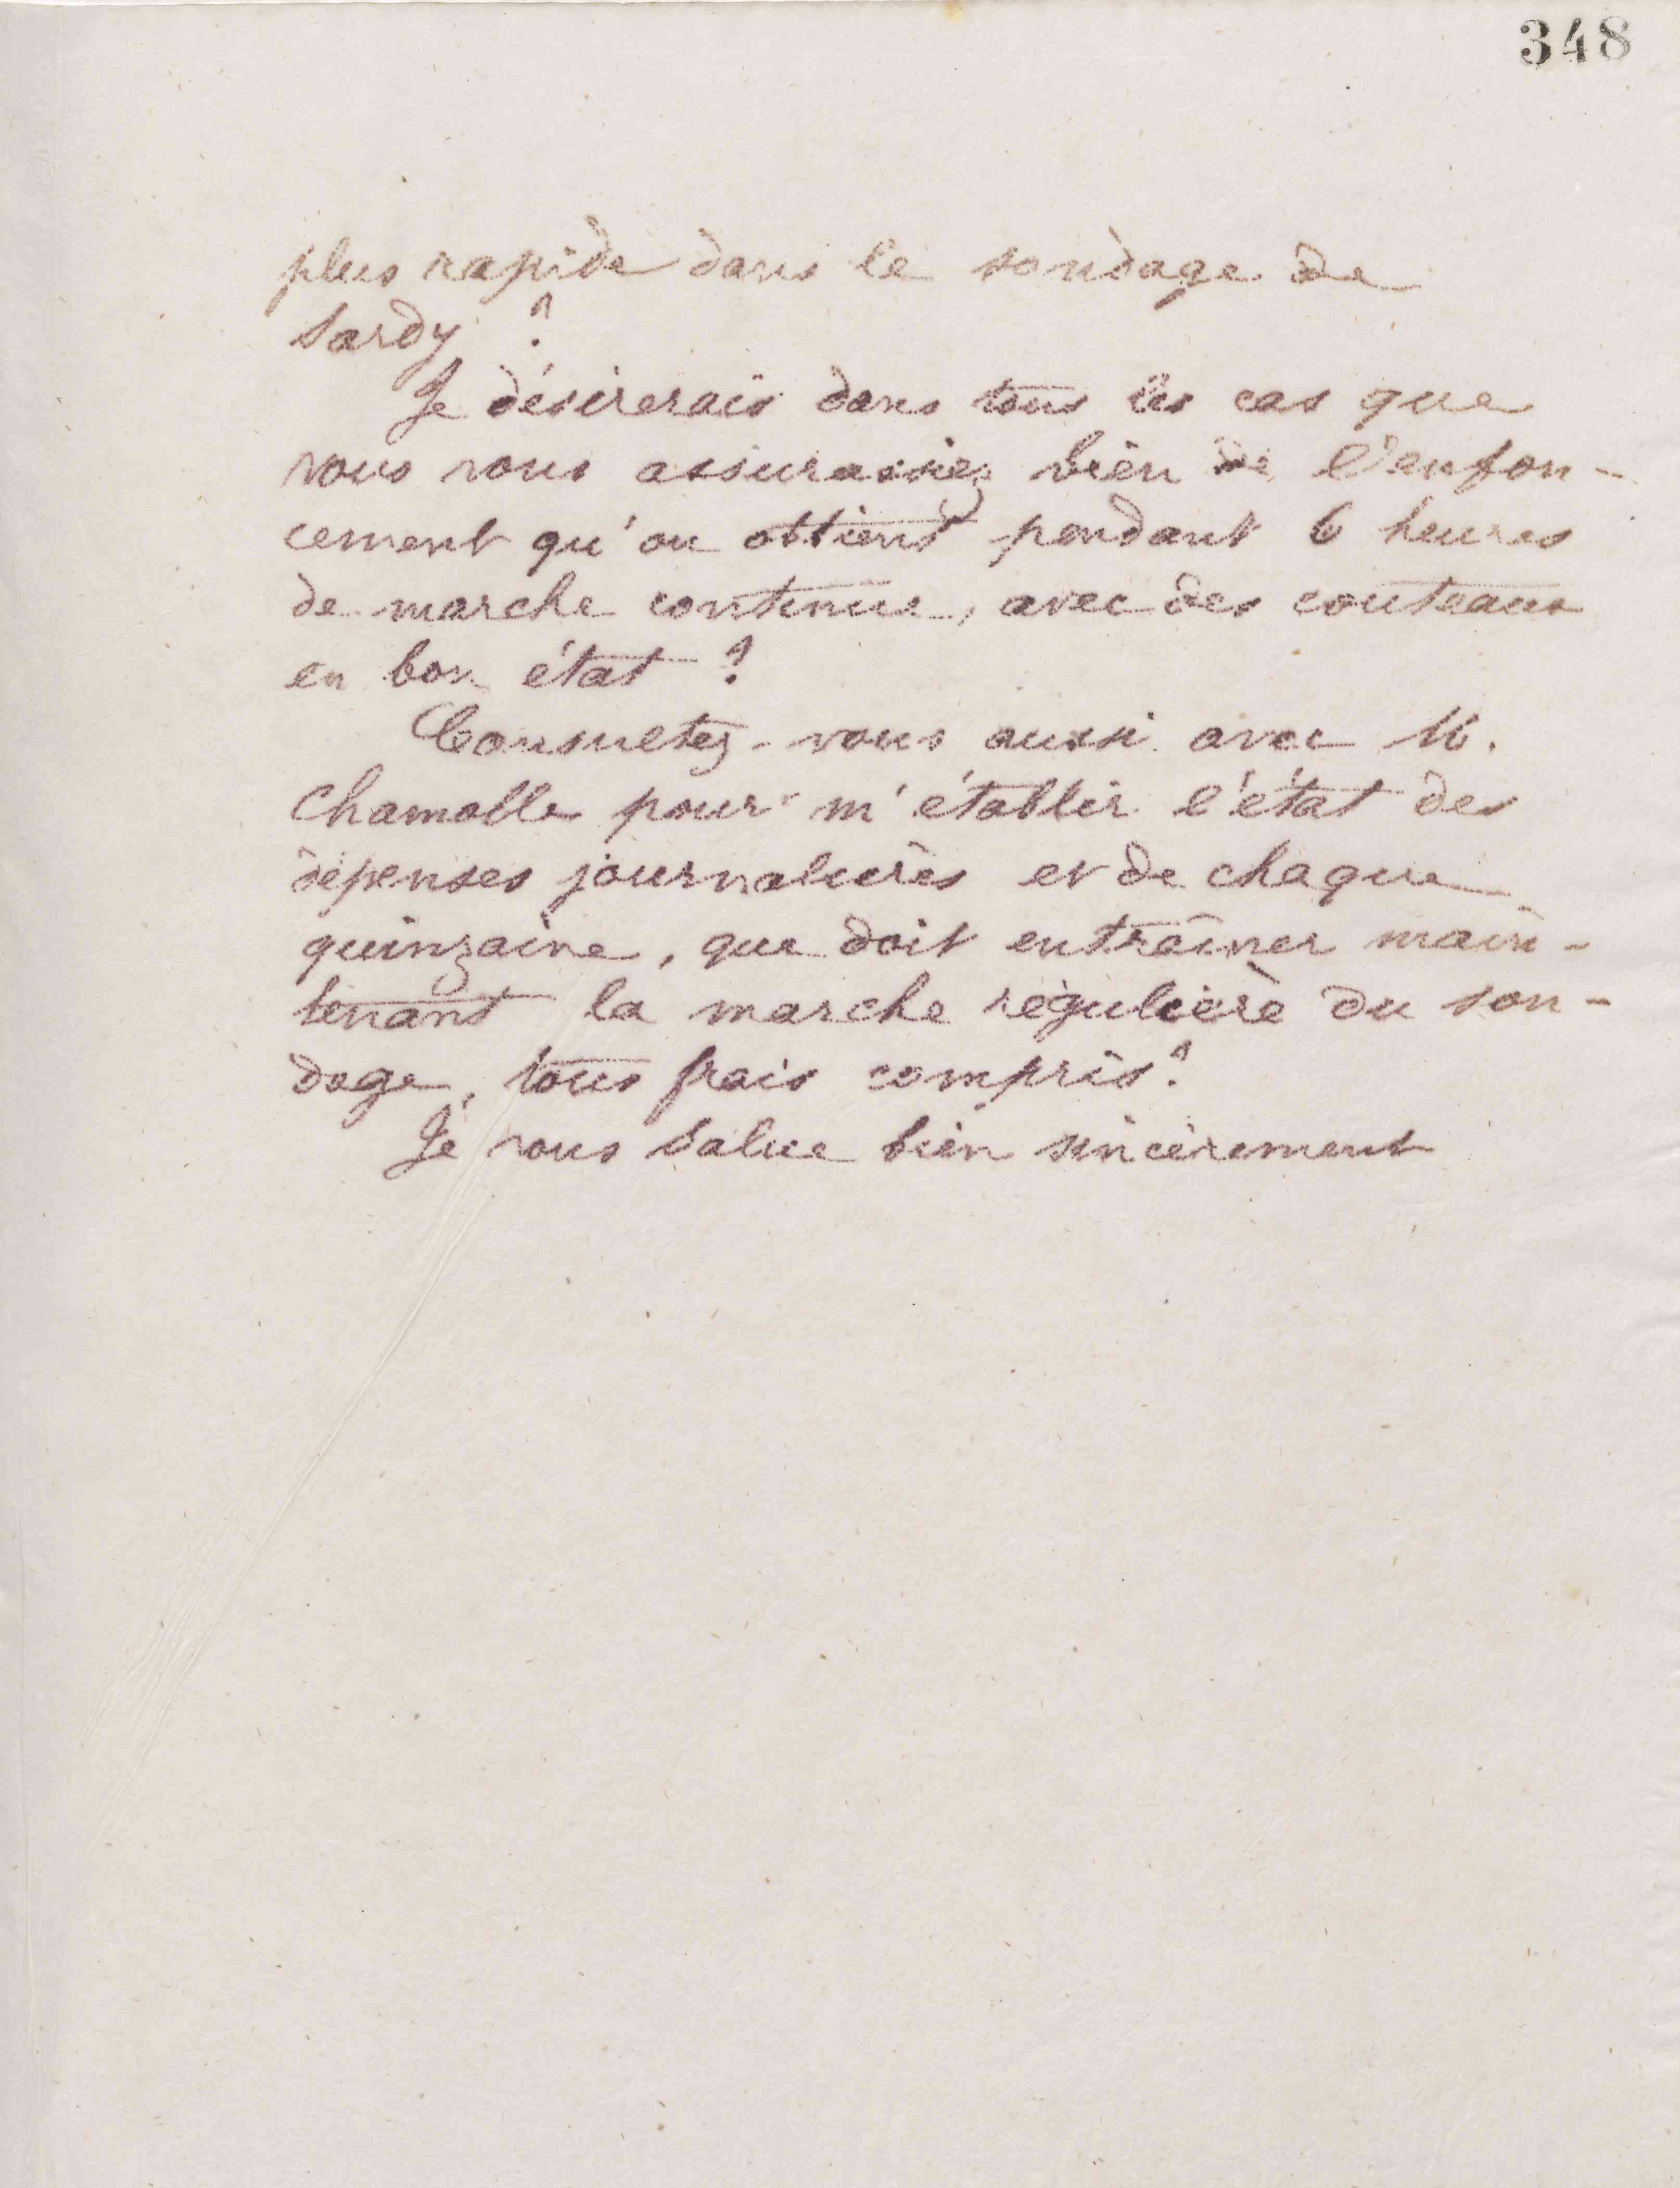 348
plus rapide dans le sondage de
Sardy ?
Je désirerais dans tous les cas que
vous vous assurassiez bien de l'enfon-
cement qu'on obtient pendant 6 heures
de marche continue, avec des couteaux
en bon état ?
Consultez-vous aussi avec M.
Chamolle pour m'établir l'état des
dépenses journalières et de chaque
quinzaine, que doit entraîner main-
tenant la marche régulière du son-
dage, tous frais compris ?
Je vous salue bien sincèrement